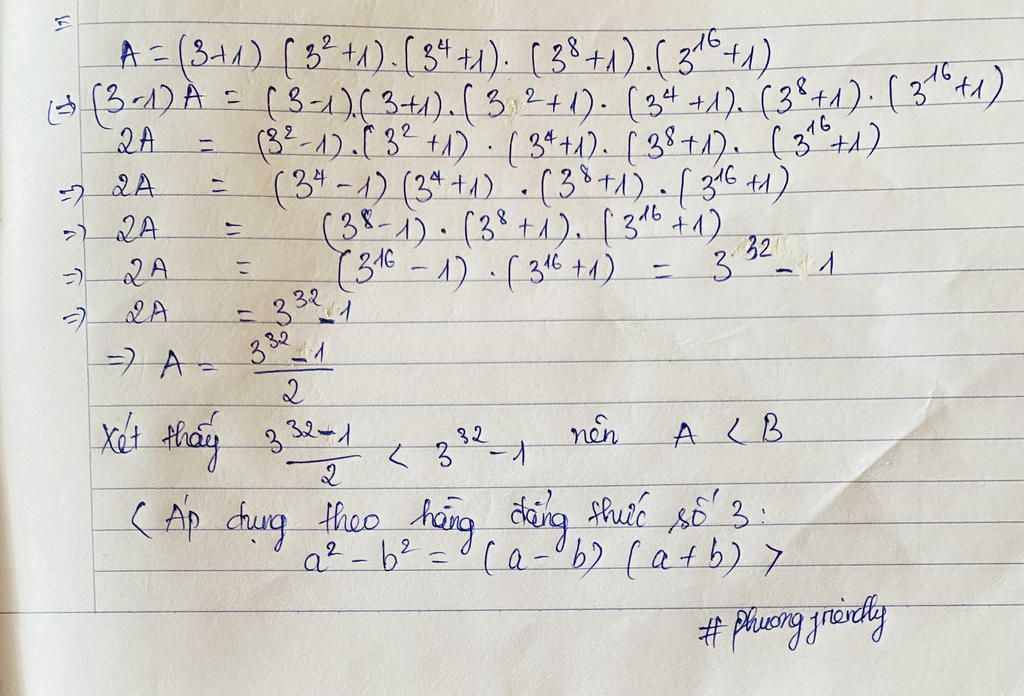 A = (3+1) (3²+1).(3⁴+1).(3⁸+1).(3¹⁶+1)
(=) (3-1)A = (3-1).(3+1).(3²+1).(3⁴+1).(3⁸+1).(3¹⁶+1)
2A = (3²-1).(3²+1).(3⁴+1).(3⁸+1).(3¹⁶+1)
=> 2A = (3⁴-1)(3⁴+1).(3⁸+1).(3¹⁶+1)
=> 2A = (3⁸-1).(3⁸+1).(3¹⁶+1)
=> 2A = (3¹⁶-1).(3¹⁶+1) = 3³²-1
=> 2A = 3³²-1
=> A = (3³²-1)/2
Xét thấy (3³²-1)/2 < 3³²-1 nên A < B
( Áp dụng theo hằng đẳng thức số 3:
a² - b² = (a-b) (a+b) >
# phuong friendly